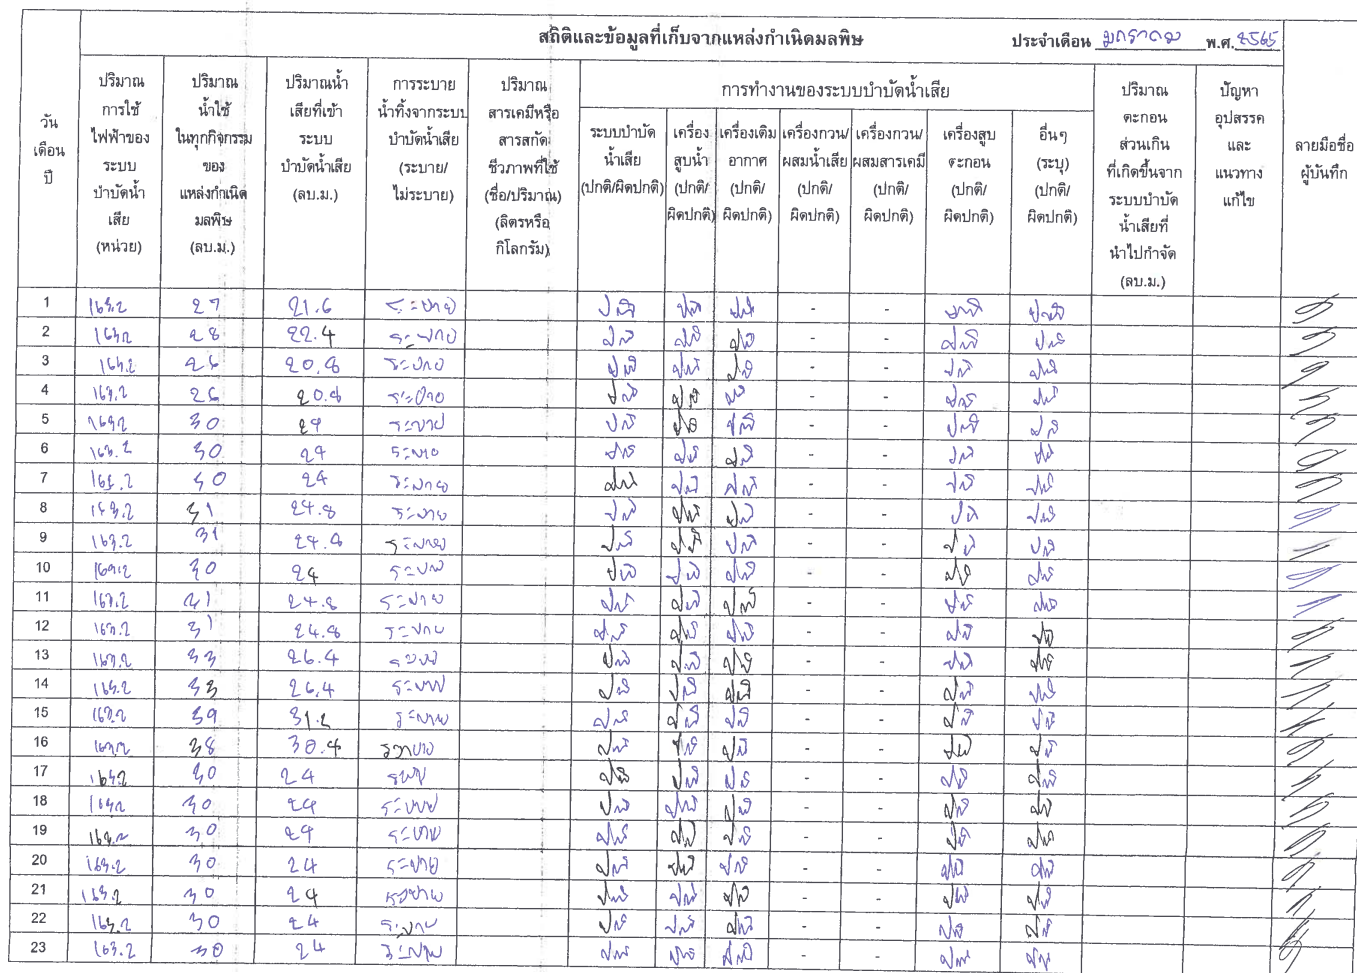 สถิติและข้อมูลที่เก็บจากแหล่งกำเนิดมลพิษ ประจำเดือน มกราคม พ.ศ. 2565
วัน เดือน ปี
ปริมาณการใช้ไฟฟ้าของระบบบำบัดน้ำเสีย (หน่วย)
ปริมาณน้ำใช้ในทุกกิจกรรมของแหล่งกำเนิดมลพิษ (ลบ.ม.)
ปริมาณน้ำเสียที่เข้าระบบบำบัดน้ำเสีย (ลบ.ม.)
การระบายน้ำทิ้งจากระบบบำบัดน้ำเสีย (ระบาย/ไม่ระบาย)
ปริมาณสารเคมีหรือสารสกัดชีวภาพที่ใช้ (ชื่อ/ปริมาณ) (ลิตรหรือกิโลกรัม)
การทำงานของระบบบำบัดน้ำเสีย
ระบบบำบัดน้ำเสีย (ปกติ/ผิดปกติ)
เครื่องสูบน้ำ (ปกติ/ผิดปกติ)
เครื่องเติมอากาศ (ปกติ/ผิดปกติ)
เครื่องกวน/ผสมน้ำเสีย (ปกติ/ผิดปกติ)
เครื่องกวน/ผสมสารเคมี (ปกติ/ผิดปกติ)
เครื่องสูบตะกอน (ปกติ/ผิดปกติ)
อื่นๆ (ระบุ) (ปกติ/ผิดปกติ)
ปริมาณตะกอนส่วนเกินที่เกิดขึ้นจากระบบบำบัดน้ำเสียที่นำไปกำจัด (ลบ.ม.)
ปัญหาอุปสรรคและแนวทางแก้ไข
ลายมือชื่อผู้บันทึก
1 163.2 27 21.6 ระบาย ปกติ ปกติ ปกติ - - ปกติ ปกติ
2 163.2 28 22.4 ระบาย ปกติ ปกติ ปกติ - - ปกติ ปกติ
3 163.2 26 20.8 ระบาย ปกติ ปกติ ปกติ - - ปกติ ปกติ
4 163.2 26 20.8 ระบาย ปกติ ปกติ ปกติ - - ปกติ ปกติ
5 163.2 30 24 ระบาย ปกติ ปกติ ปกติ - - ปกติ ปกติ
6 163.2 30 24 ระบาย ปกติ ปกติ ปกติ - - ปกติ ปกติ
7 163.2 30 24 ระบาย ปกติ ปกติ ปกติ - - ปกติ ปกติ
8 163.2 31 24.8 ระบาย ปกติ ปกติ ปกติ - - ปกติ ปกติ
9 163.2 31 24.8 ระบาย ปกติ ปกติ ปกติ - - ปกติ ปกติ
10 163.2 30 24 ระบาย ปกติ ปกติ ปกติ - - ปกติ ปกติ
11 163.2 31 24.8 ระบาย ปกติ ปกติ ปกติ - - ปกติ ปกติ
12 163.2 31 24.8 ระบาย ปกติ ปกติ ปกติ - - ปกติ ปกติ
13 163.2 33 26.4 ระบาย ปกติ ปกติ ปกติ - - ปกติ ปกติ
14 163.2 33 26.4 ระบาย ปกติ ปกติ ปกติ - - ปกติ ปกติ
15 163.2 39 31.2 ระบาย ปกติ ปกติ ปกติ - - ปกติ ปกติ
16 163.2 38 30.4 ระบาย ปกติ ปกติ ปกติ - - ปกติ ปกติ
17 163.2 30 24 ระบาย ปกติ ปกติ ปกติ - - ปกติ ปกติ
18 163.2 30 24 ระบาย ปกติ ปกติ ปกติ - - ปกติ ปกติ
19 163.2 30 24 ระบาย ปกติ ปกติ ปกติ - - ปกติ ปกติ
20 163.2 30 24 ระบาย ปกติ ปกติ ปกติ - - ปกติ ปกติ
21 163.2 30 24 ระบาย ปกติ ปกติ ปกติ - - ปกติ ปกติ
22 163.2 30 24 ระบาย ปกติ ปกติ ปกติ - - ปกติ ปกติ
23 163.2 30 24 ระบาย ปกติ ปกติ ปกติ - - ปกติ ปกติ